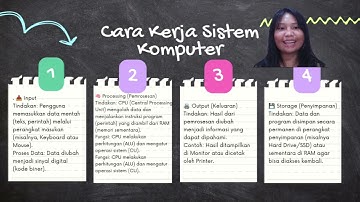 Cara Kerja Sistem
Komputer
1
2
3
4
📥 Input
Tindakan: Pengguna
memasukkan data mentah
(teks, perintah) melalui
perangkat masukan
(misalnya, Keyboard atau
Mouse).
Proses Data: Data diubah
menjadi sinyal digital
(kode biner).
🧠 Processing (Pemrosesan)
Tindakan: CPU (Central Processing
Unit) mengolah data dan
menjalankan instruksi program
(perintah) yang diambil dari RAM
(memori sementara).
Fungsi: CPU melakukan
perhitungan (ALU) dan mengatur
operasi sistem (CU).
Fungsi: CPU melakukan
perhitungan (ALU) dan mengatur
operasi sistem (CU).
🖨️ Output (Keluaran)
Tindakan: Hasil dari
pemrosesan diubah
menjadi informasi yang
dapat dipahami.
Contoh: Hasil ditampilkan
di Monitor atau dicetak
oleh Printer.
💾 Storage (Penyimpanan)
Tindakan: Data dan
program disimpan secara
permanen di perangkat
penyimpanan (misalnya
Hard Drive/SSD) atau
sementara di RAM agar
bisa diakses kembali.